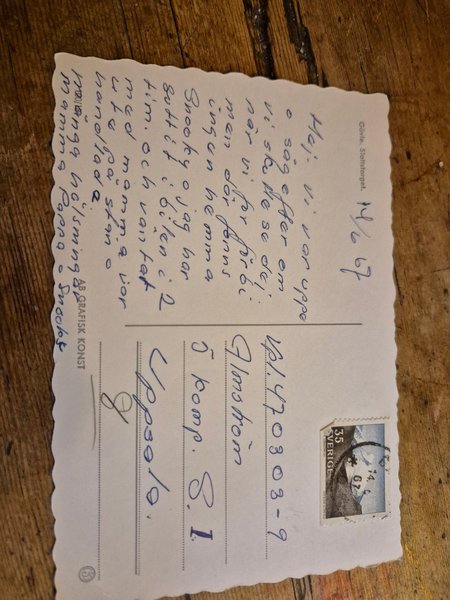 Gävle. Slottstorget.
14/6 67
Hej, vi var uppe
o såg efter om
vi skulle se dej
när vi for förbi
men där fanns
ingen hemma
Snooky o jag har
suttit i bilen i 2
tim. och väntat
med mamma var
ute på stan o
handlade
många hälsningar
mamma Pappa o Snooky
AB GRAFISK KONST
Vpl 470303-9
Almström
5 komp. S. 1
Uppsala.
35
SVERIGE
14. 6
67